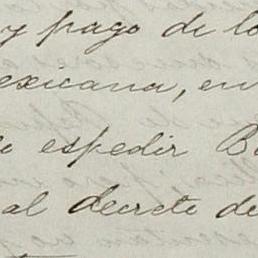 y pago de lo
exicana, en
espedir B
al decreto de